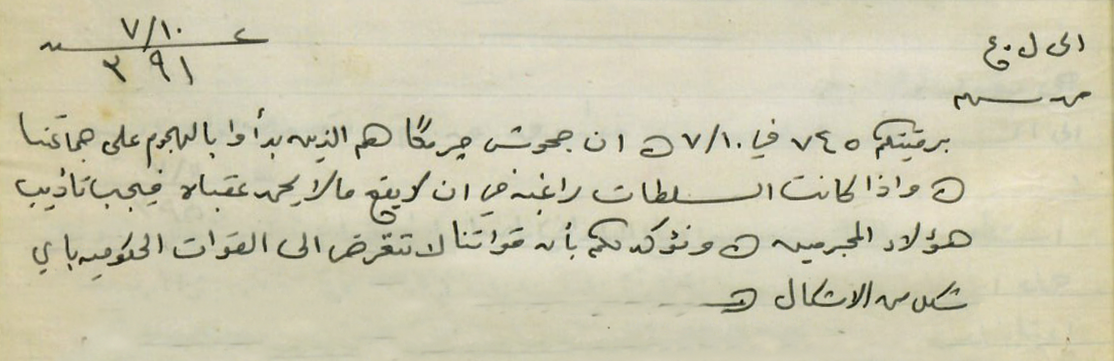 ٧/١٠
٣٩١
الى ل. ع
من س
برقيتكم ٧٤٥ في ٧/١٠ ان جحوش چرمگا هم الذين بدأوا بالهجوم على جماعتنا
واذا كانت السلطات راغبة في ان لا يقع مالا يحمد عقباه فيجب تاذيب
هؤلاء المجرمين ونؤكد لكم بأن قواتنا لا تتعرض الى القوات الحكوميه باي
شكل من الاشكال